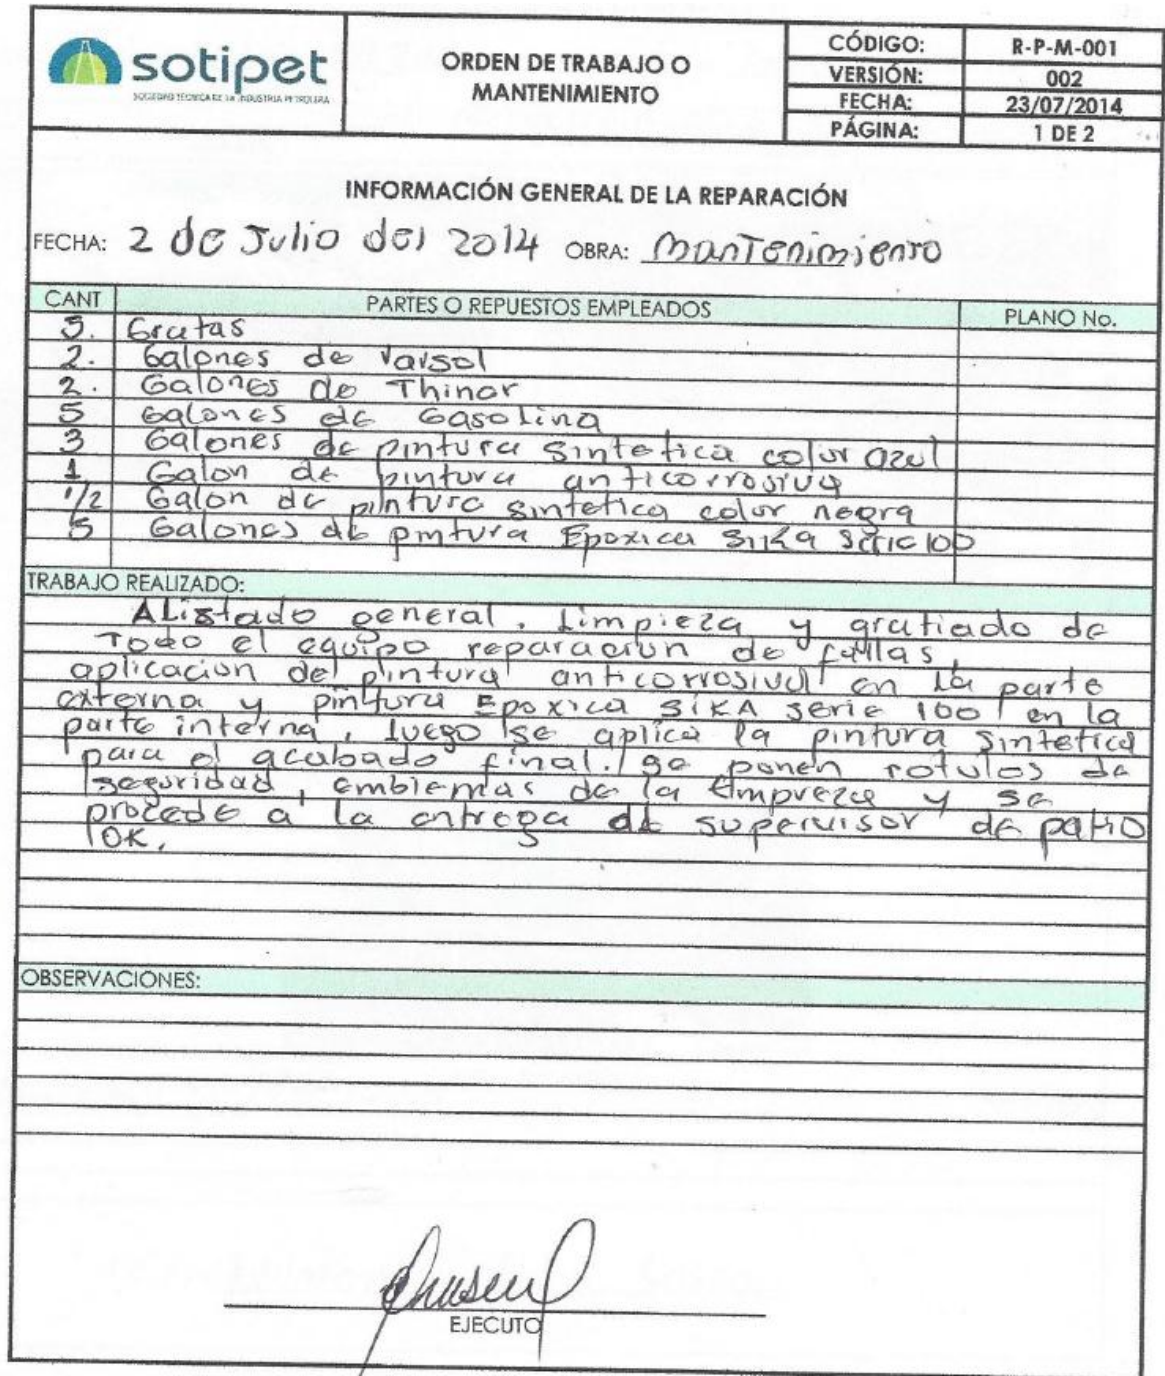 sotipet
SOCIEDAD TECNICA DE LA INDUSTRIA PETROLERA
ORDEN DE TRABAJO O
MANTENIMIENTO
CÓDIGO: R-P-M-001
VERSIÓN: 002
FECHA: 23/07/2014
PÁGINA: 1 DE 2
INFORMACIÓN GENERAL DE LA REPARACIÓN
FECHA: 2 de Julio del 2014 OBRA: Mantenimiento
CANT PARTES O REPUESTOS EMPLEADOS PLANO No.
5. Gratas
2. Galones de Varsol
2. Galones de Thinor
5 Galones de Gasolina
3 Galones de pintura sintetica color azul
1 Galon de pintura anticorrosiva
1/2 Galon de pintura sintetica color negra
5 Galones de pintura Epoxica Sika Serie 100
TRABAJO REALIZADO:
Alistado general, Limpieza y gratiado de
Todo el equipo reparacion de fallas,
aplicacion de pintura anticorrosiva en la parte
externa y pintura Epoxica SIKA serie 100 en la
parte interna, luego se aplica la pintura sintetica
para el acabado final. se ponen rotulos de
seguridad, emblemas de la Empreza y se
procede a la entrega de supervisor de patio
OK.
OBSERVACIONES:
EJECUTO